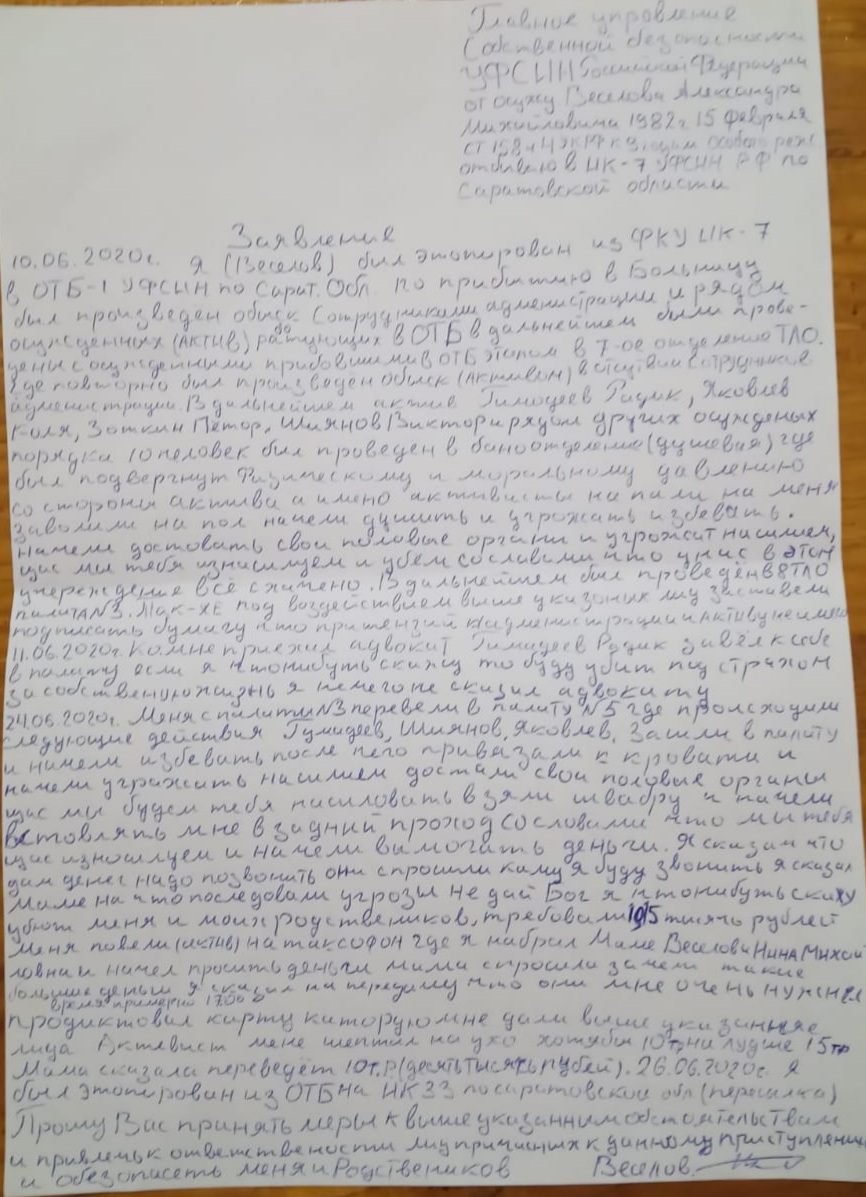 Главное упровление
Собственной безопасности
УФСИН Российской Федерации
от осужд Веселова Александра
Михайловича 1982г. 15 Февраля
ст 158 ч 4 УК РФ к Особого реж.
отбываю в ИК-7 УФСИН РФ по
Саратовской области
Заявление
10.06.2020г. Я (Веселов) был этопирован из ФКУ ИК-7
в ОТБ-1 УФСИН по Сарат. Обл. По прибытию в Больницу
был произведён обыск Сотрудниками администрации и рядом
осужденных (АКТИВ) работующих в ОТБ в дальнейшем были прове-
дены с осужденными прибовшими в ОТБ этапом в 7-ое отделение ТЛО.
где повторно был произведён обыск (Активом) в отсутсвии Сотрудников
администрации. В дальнейшем актив Гимодеев Радик, Яковлев
Коля, Зоткин Пётор, Шиянов Виктор и рядом других осужденых
порядка 10 человек был проведен в баноотделение (душевая) где
был подвергнут Физическому и моральному давлению
со стороны актива а имено активисты напали на меня
заволили на пол начели душить и угрожать избевать.
начели достовать свои половые органы и угрожат насилием,
щас мы тебя изнасилуем и убем сословами что у нас в этом
учереждение всё схвачено. В дальнейшем был проведён в 8 ТЛО
палата №3. Так-ХЕ под воздействием выше указоных лиц заставели
подписать бумагу что притензий к администрации и Активу не имею
11.06.2020г. Комне приехал адвокат Гимадеев Радик завёл к себе
в палату если я чтонибуть скажу то буду убит под страхом
за собственую жизнь я нечего не сказал адвокату
24.06.2020г. Меня с палаты №3 перевели в палату №5 где происходили
следующие действия Гумадеев, Шиянов, Яковлев, Зашли в палату
и начели избевать после чего привязали к кровати и
начели угражать насилием достали свои половые органы
щас мы будем тебя насиловать взяли швабру и начели
встовлять мне в задний проход сословами что мы тебя
щас износилуем и начели вымогать деньги. Я сказал что
дам денег надо позвонить они спросили каму я буду звонить я сказал
маме на что последовали угрозы не дай Бог я чтонибуть скажу
убют меня и моих родствеников, требовали 15 тысячь рублей
меня повели (актив) на таксофон где я набрал Маме Веселова Нина Михай
ловна и начел просить деньги мама спросила зачем такие
большие деньги я сказал на передачу что они мне очень нужны
время примерно 17:00
продиктовал карту каторую мне дали выше указанные
лица Активист мене шептал на ухо хотябы 10 тр на лудше 15 тр
Мама сказала переведёт 10 т.р (десять тысячь рублей). 26.06.2020г. Я
был этопирован из ОТБ на ИК 33 по саратовской обл (пересылка)
Прошу Вас принять меры к выше указанным обстоятельствам
и привлечь к ответствености лиц причасных к данному приступлению
и обезопасеть меня и Родствеников Веселов